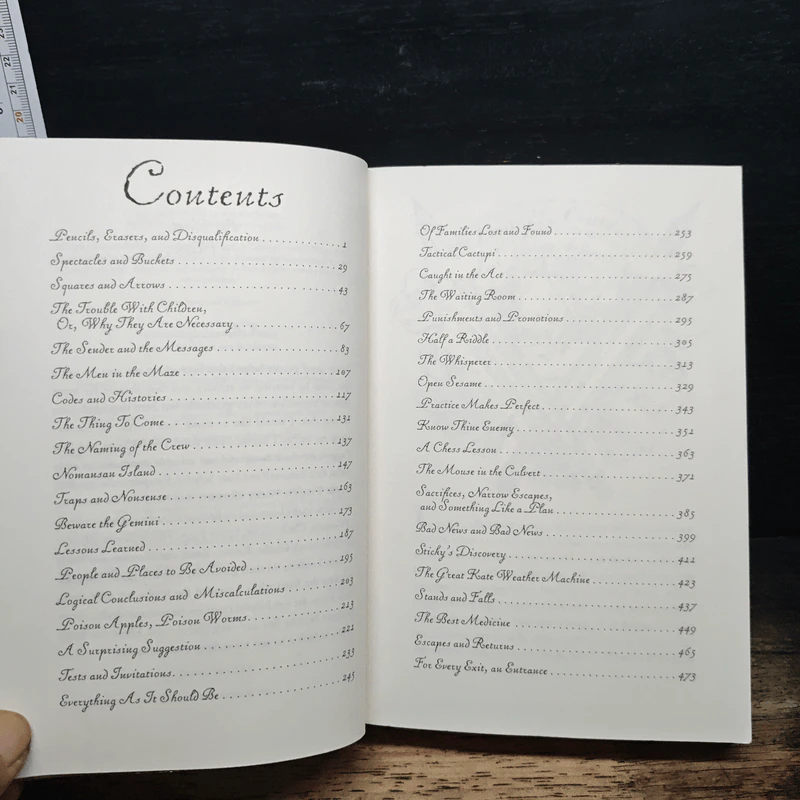 Contents
Pencils, Erasers, and Disqualification . . . . . . . . . . . . . 1
Spectacles and Buckets . . . . . . . . . . . . . . . . . . . . . . . 29
Squares and Arrows . . . . . . . . . . . . . . . . . . . . . . . . . 43
The Trouble With Children,
Or, Why They Are Necessary . . . . . . . . . . . . . . . . . 67
The Sender and the Messages . . . . . . . . . . . . . . . . . . 83
The Men in the Maze . . . . . . . . . . . . . . . . . . . . . . . 107
Codes and Histories . . . . . . . . . . . . . . . . . . . . . . . . 117
The Thing To Come . . . . . . . . . . . . . . . . . . . . . . . . 131
The Naming of the Crew . . . . . . . . . . . . . . . . . . . . . 137
Nomansan Island . . . . . . . . . . . . . . . . . . . . . . . . . . 147
Traps and Nonsense . . . . . . . . . . . . . . . . . . . . . . . . 163
Beware the Gemini . . . . . . . . . . . . . . . . . . . . . . . . . 173
Lessons Learned . . . . . . . . . . . . . . . . . . . . . . . . . . . 187
People and Places to Be Avoided . . . . . . . . . . . . . . . 195
Logical Conclusions and Miscalculations . . . . . . . . . . 203
Poison Apples, Poison Worms . . . . . . . . . . . . . . . . . 213
A Surprising Suggestion . . . . . . . . . . . . . . . . . . . . . 221
Tests and Invitations . . . . . . . . . . . . . . . . . . . . . . . . 233
Everything As It Should Be . . . . . . . . . . . . . . . . . . . 245
Of Families Lost and Found . . . . . . . . . . . . . . . . . . . 253
Tactical Cactupi . . . . . . . . . . . . . . . . . . . . . . . . . . . 259
Caught in the Act . . . . . . . . . . . . . . . . . . . . . . . . . . 275
The Waiting Room . . . . . . . . . . . . . . . . . . . . . . . . . 287
Punishments and Promotions . . . . . . . . . . . . . . . . . . 295
Half a Riddle . . . . . . . . . . . . . . . . . . . . . . . . . . . . . 305
The Whisperer . . . . . . . . . . . . . . . . . . . . . . . . . . . . 313
Open Sesame . . . . . . . . . . . . . . . . . . . . . . . . . . . . . 329
Practice Makes Perfect . . . . . . . . . . . . . . . . . . . . . . 343
Know Thine Enemy . . . . . . . . . . . . . . . . . . . . . . . . 351
A Chess Lesson . . . . . . . . . . . . . . . . . . . . . . . . . . . 363
The Mouse in the Culvert . . . . . . . . . . . . . . . . . . . . 371
Sacrifices, Narrow Escapes,
and Something Like a Plan . . . . . . . . . . . . . . . . . . . 385
Bad News and Bad News . . . . . . . . . . . . . . . . . . . . . 399
Sticky's Discovery . . . . . . . . . . . . . . . . . . . . . . . . . 411
The Great Kate Weather Machine . . . . . . . . . . . . . . 423
Stands and Falls . . . . . . . . . . . . . . . . . . . . . . . . . . 437
The Best Medicine . . . . . . . . . . . . . . . . . . . . . . . . . 449
Escapes and Returns . . . . . . . . . . . . . . . . . . . . . . . . 465
For Every Exit, an Entrance . . . . . . . . . . . . . . . . . . 473
23
22
21
20